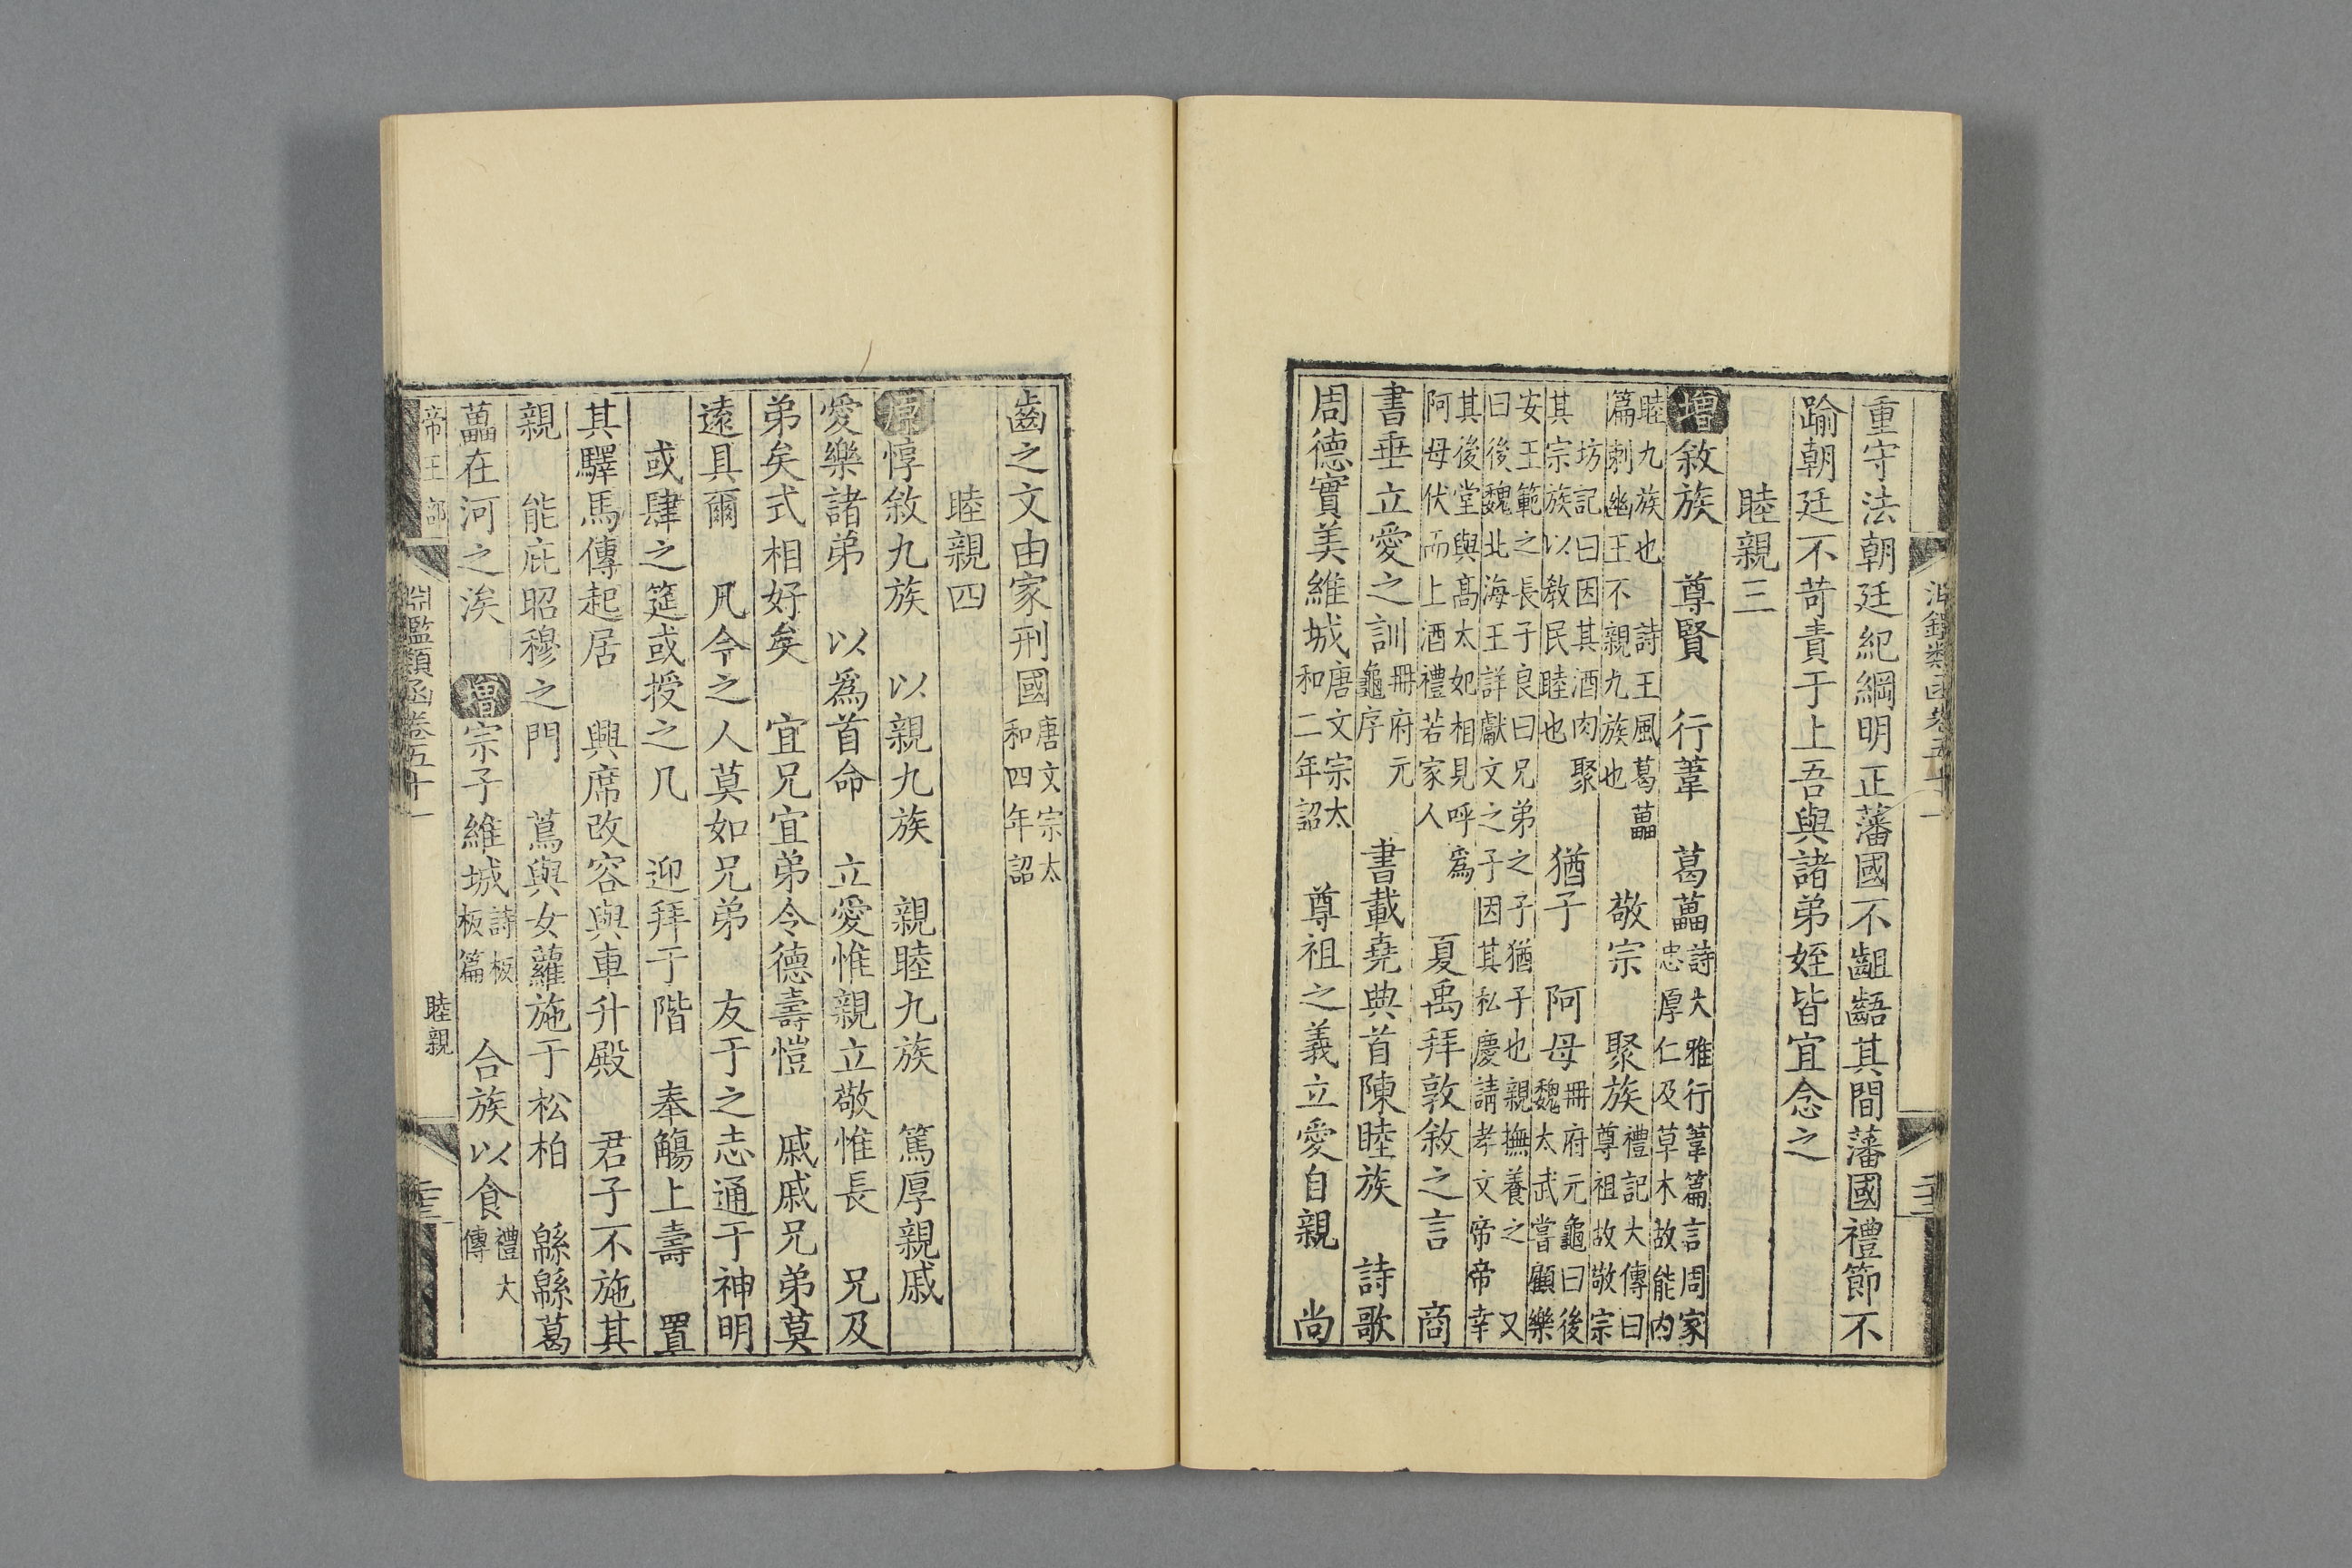 淵鑑類函卷五十一
重守法朝廷紀綱明正藩國不齟齬其間藩國禮節不
踰朝廷不苛責于上吾與諸弟姪皆宜念之
睦親三
增敘族 尊賢 行葦 葛藟詩大雅行葦篇言周家
忠厚仁及草木故能內
睦九族也 詩王風葛藟
篇刺幽王不親九族也 敬宗 聚族禮記大傳曰
尊祖故敬宗
坊記曰因其酒肉聚
其宗族以敎民睦也 猶子 阿母冊府元龜曰後
魏太武嘗顧樂
安王範之長子良曰兄弟之子猶子也親撫養之 又
曰後魏北海王詳獻文之子因其私慶請孝文帝帝幸
其後堂與高太妃相見呼爲
阿母伏而上酒禮若家人 夏禹拜敦敘之言 商
書垂立愛之訓冊府元
龜序 書載堯典首陳睦族 詩歌
周德實美維城唐文宗太
和二年詔 尊祖之義立愛自親 尚
齒之文由家刑國唐文宗太
和四年詔
睦親四
原惇敘九族 以親九族 親睦九族 篤厚親戚
愛樂諸弟 以爲首命 立愛惟親立敬惟長 兄及
弟矣式相好矣 宜兄宜弟令德壽愷 戚戚兄弟莫
遠具爾 凡今之人莫如兄弟 友于之志通于神明
或肆之筵或授之几 迎拜于階 奉觴上壽 置
其驛馬傳起居 興席改容與車升殿 君子不施其
親 能庇昭穆之門 蔦與女蘿施于松柏 緜緜葛
藟在河之涘 增宗子維城詩板
板篇 合族以食禮大
傳
帝王部 淵鑑類函卷五十一 睦親